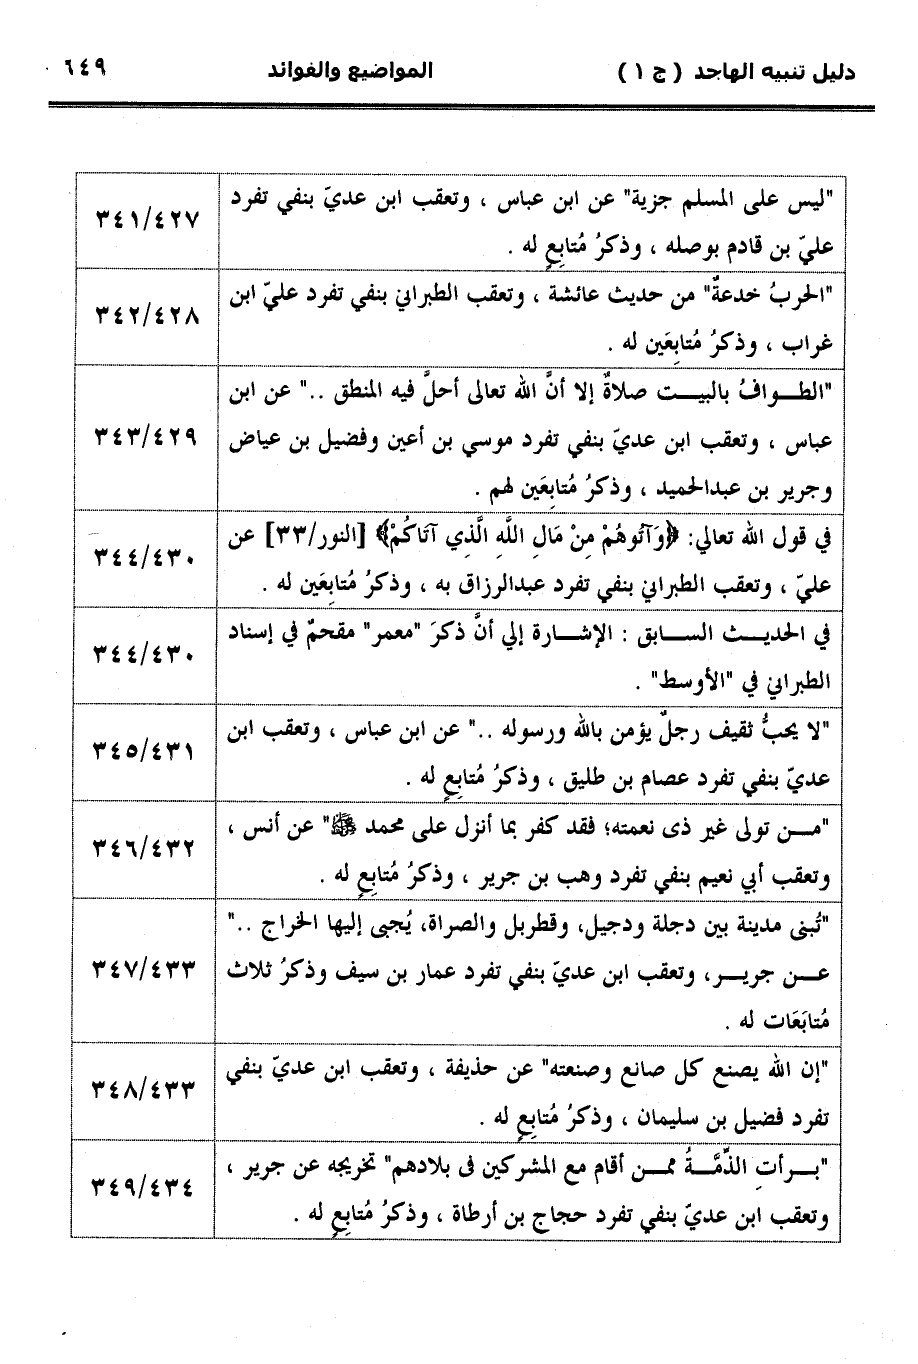 دليل تنبيه الهاجد ( ج ١ ) المواضيع والفوائد ٦٤٩
"ليس على المسلم جزية" عن ابن عباس ، وتعقب ابن عديّ بنفي تفرد
عليّ بن قادم بوصله ، وذكرُ مُتابِعٍ له .
٣٤١/٤٢٧
"الحربُ خدعةٌ" من حديث عائشة ، وتعقب الطبراني بنفي تفرد عليّ ابن
غراب ، وذكرُ مُتابِعَين له .
٣٤٢/٤٢٨
"الطوافُ بالبيت صلاةٌ إلا أنَّ الله تعالى أحلَّ فيه المنطق .." عن ابن
عباس ، وتعقب ابن عديّ بنفي تفرد موسي بن أعين وفضيل بن عياض
وجرير بن عبدالحميد ، وذكرُ مُتابِعَين لهم .
٣٤٣/٤٢٩
في قول الله تعالي: ﴿وَآتُوهُمْ مِنْ مَالِ اللَّهِ الَّذِي آتَاكُمْ﴾ [النور/٣٣] عن
عليّ ، وتعقب الطبراني بنفي تفرد عبدالرزاق به ، وذكرُ مُتابِعَين له .
٣٤٤/٤٣٠
في الحديث السابق : الإشارة إلي أنَّ ذكرَ "معمر" مقحمٌ في إسناد
الطبراني في "الأوسط" .
٣٤٤/٤٣٠
"لا يحبُّ ثقيف رجلٌ يؤمن بالله ورسوله .." عن ابن عباس ، وتعقب ابن
عديّ بنفي تفرد عصام بن طليق ، وذكرُ مُتابِعٍ له .
٣٤٥/٤٣١
"من تولى غير ذى نعمته؛ فقد كفر بما أنزل على محمد ﷺ" عن أنس ،
وتعقب أبي نعيم بنفي تفرد وهب بن جرير ، وذكرُ مُتابِعٍ له .
٣٤٦/٤٣٢
"تُبنى مدينة بين دجلة ودجيل، وقطربل والصراة، يُجبى إليها الخراج .."
عن جرير، وتعقب ابن عديّ بنفي تفرد عمار بن سيف وذكرُ ثلاث
مُتابَعَات له .
٣٤٧/٤٣٣
"إن الله يصنع كل صانع وصنعته" عن حذيفة ، وتعقب ابن عديّ بنفي
تفرد فضيل بن سليمان ، وذكرُ مُتابِعٍ له .
٣٤٨/٤٣٣
"برأتِ الذِّمَّةُ ممن أقام مع المشركين فى بلادهم" تخريجه عن جرير ،
وتعقب ابن عديّ بنفي تفرد حجاج بن أرطاة ، وذكرُ مُتابِعٍ له .
٣٤٩/٤٣٤